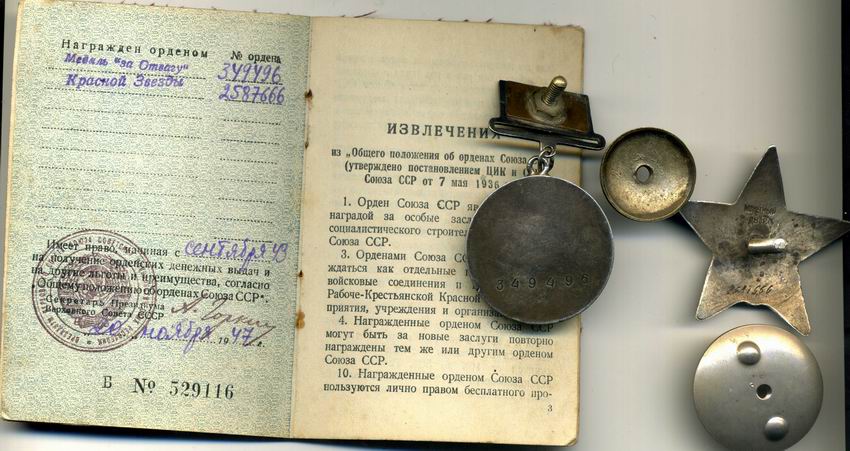 Награжден орденом № ордена
Медаль "за Отвагу" 349496
Красной Звезды 2587666
Имеет право, начиная с сентября 43
на получение орденских денежных выдач и
на другие льготы и преимущества, согласно
„Общему положению об орденах Союза ССР“.
Секретарь Президиума
Верховного Совета СССР А. Горкин
20 ноября 1947 г.
Б № 529116
ИЗВЛЕЧЕНИ
из „Общего положения об орденах Союза
(утверждено постановлением ЦИК и
Союза ССР от 7 мая 1936
1. Орден Союза ССР яв
наградой за особые засл
социалистического строител
Союза ССР.
3. Орденами Союза СС
ждаться как отдельные г
войсковые соединения и
Рабоче-Крестьянской Красной
приятия, учреждения и организа
4. Награжденные орденом Союза ССР
могут быть за новые заслуги повторно
награждены тем же или другим орденом
Союза ССР.
10. Награжденные орденом Союза ССР
пользуются лично правом бесплатного про-
3
349496
МОНЕТНЫЙ
ДВОР